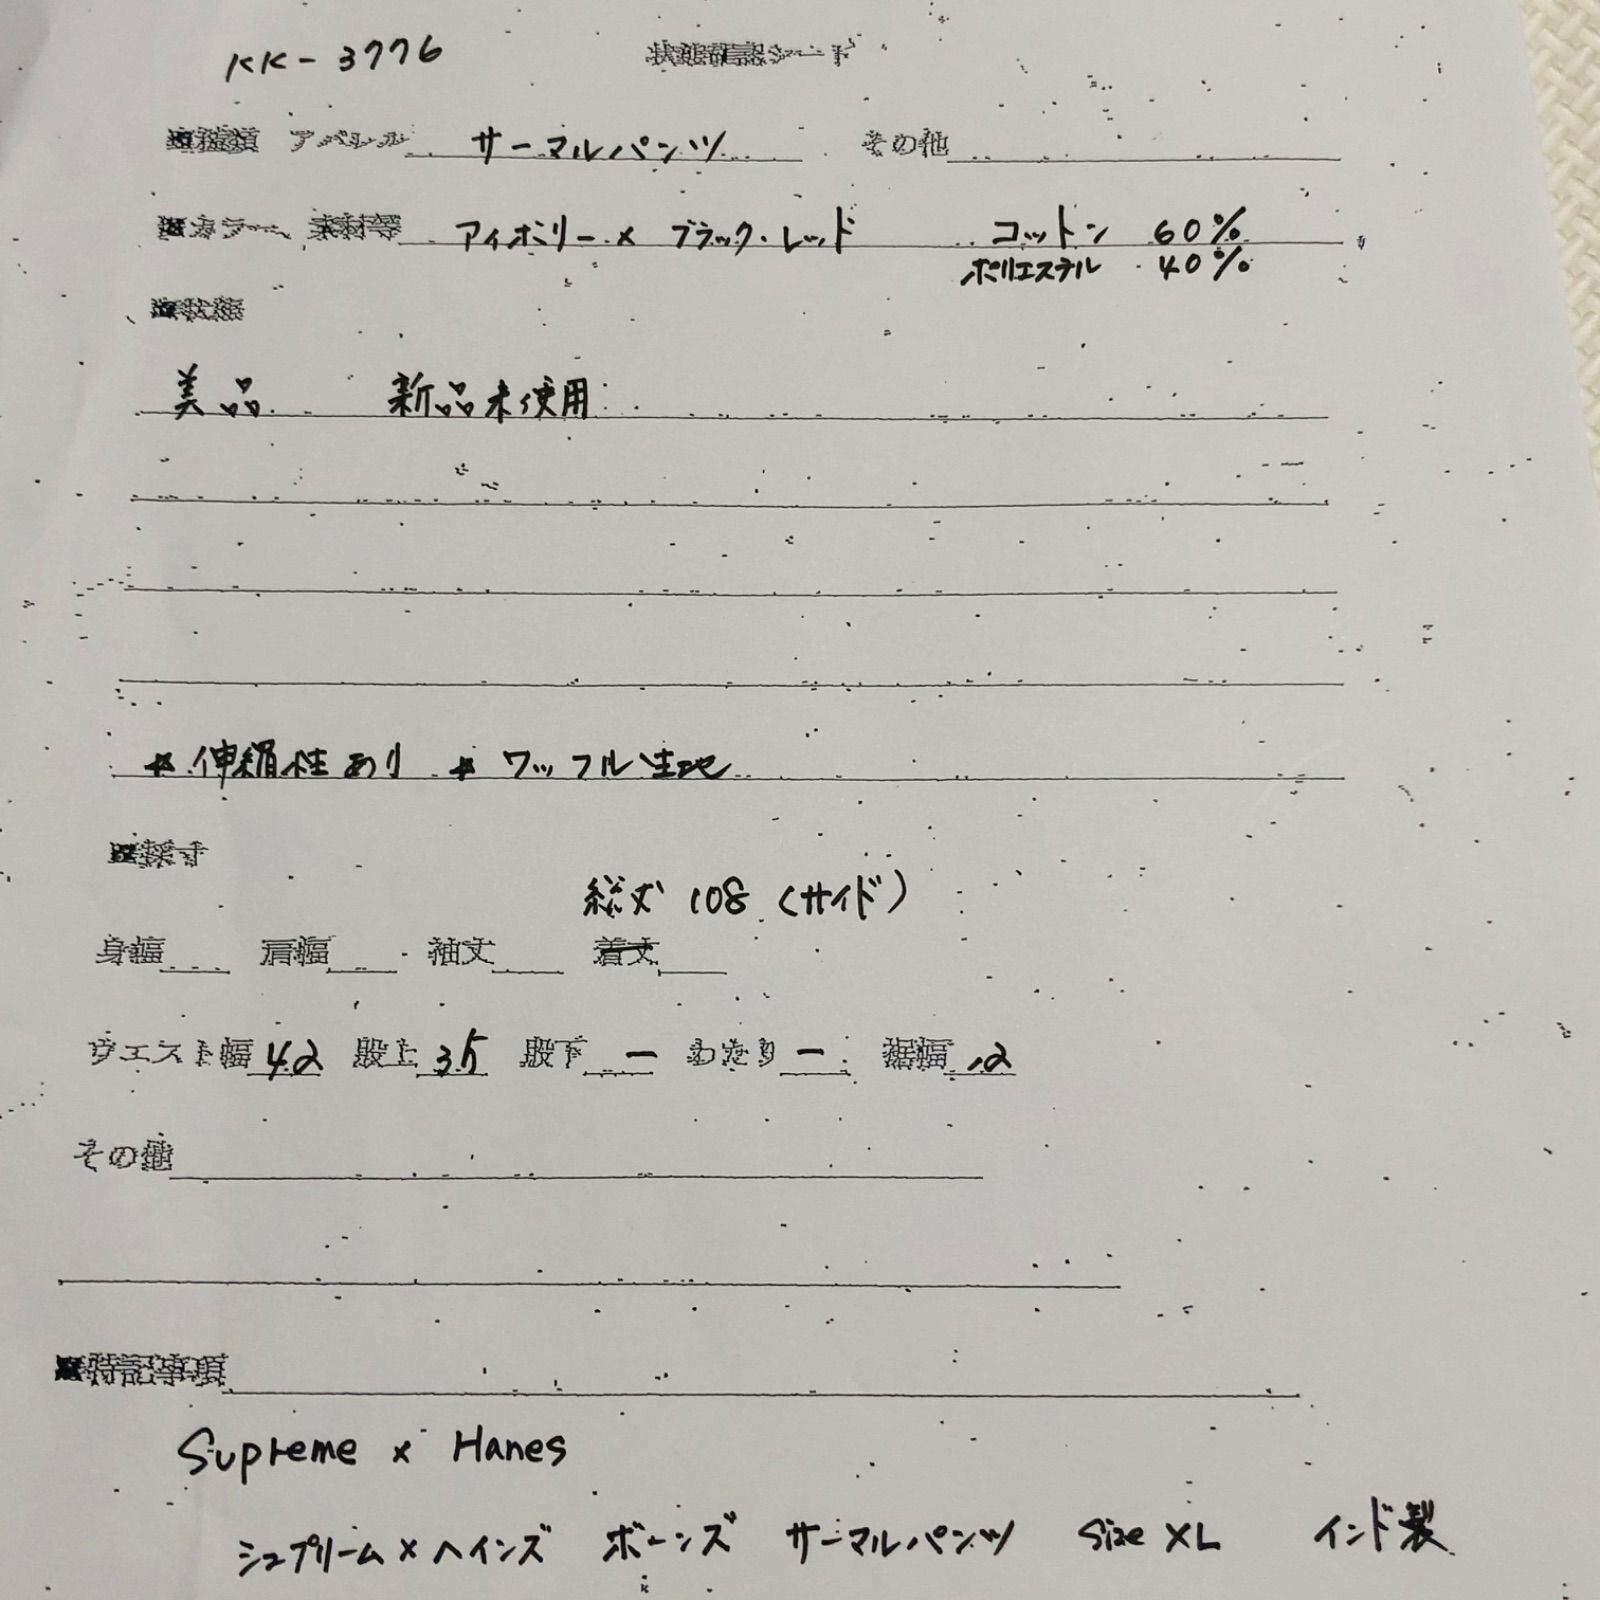 KK-3776 状態確認シート
■種類 アパレル サーマルパンツ その他
■カラー、素材等 アイボリー×ブラック・レッド コットン 60%
ポリエステル 40%
■状態
美品 新品未使用
★伸縮性あり ★ワッフル生地
■採寸
総丈 108 (サイド)
身幅 肩幅 袖丈 着丈
ウエスト幅 42 股上 35 股下 ー わたり ー 裾幅 12
その他
■特記事項
Supreme × Hanes
シュプリーム×ヘインズ ボーンズ サーマルパンツ Size XL インド製